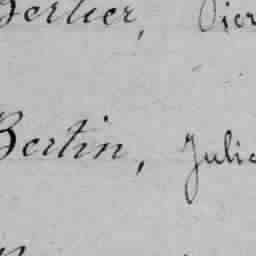 Bertier, Pier
Bertin, Julie